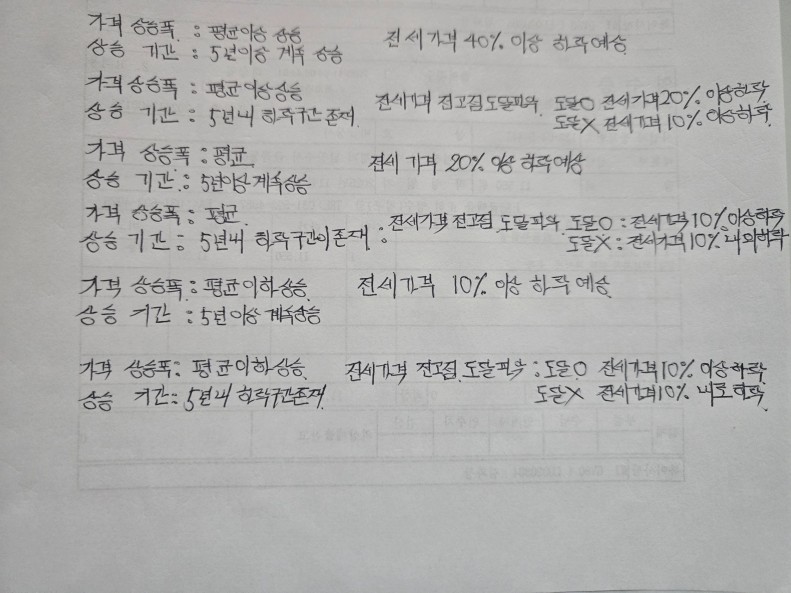 가격 상승폭 : 평균이상 상승
상승 기간 : 5년이상 계속 상승 전세가격 40% 이상 하락예상
가격상승폭 : 평균이상상승
상승 기간 : 5년내 하락구간존재. 전세가격 전고점도달파악 도달O 전세가격20% 이상하락
도달X 전세가격 10% 이상하락
가격 상승폭 : 평균 전세 가격 20% 이상 하락예상
상승 기간 : 5년이상 계속상승
가격 상승폭 : 평균
상승 기간 : 5년내 하락구간이존재 : 전세가격 전고점 도달파악 도달O : 전세가격10%이상하락
도달X : 전세가격10%내외하락
가격 상승폭 : 평균이하상승. 전세가격 10% 이상 하락예상
상승 기간 : 5년이상 계속상승
가격 상승폭 : 평균이하상승. 전세가격 전고점 도달파악 : 도달O 전세가격10% 이상하락
상승 기간 : 5년내 하락구간존재. 도달X 전세가격10% 내로하락